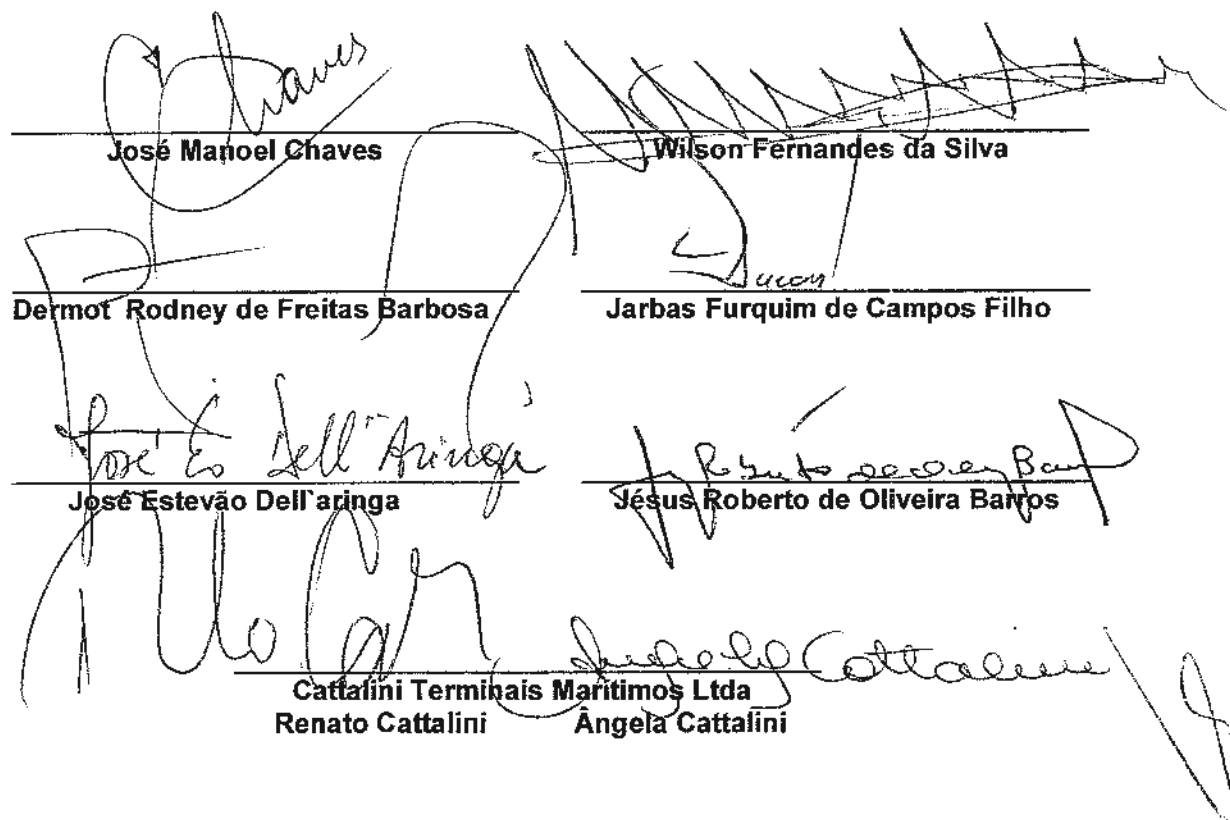 Chaves
José Manoel Chaves
Wilson Fernandes da Silva
Dermot Rodney de Freitas Barbosa
Jarbas Furquim de Campos Filho
José Eo Dell'Aringa
José Estevão Dell`aringa
Roberto
Jésus Roberto de Oliveira Barros
Cattalini
Cattalini Terminais Marítimos Ltda
Renato Cattalini Ângela Cattalini